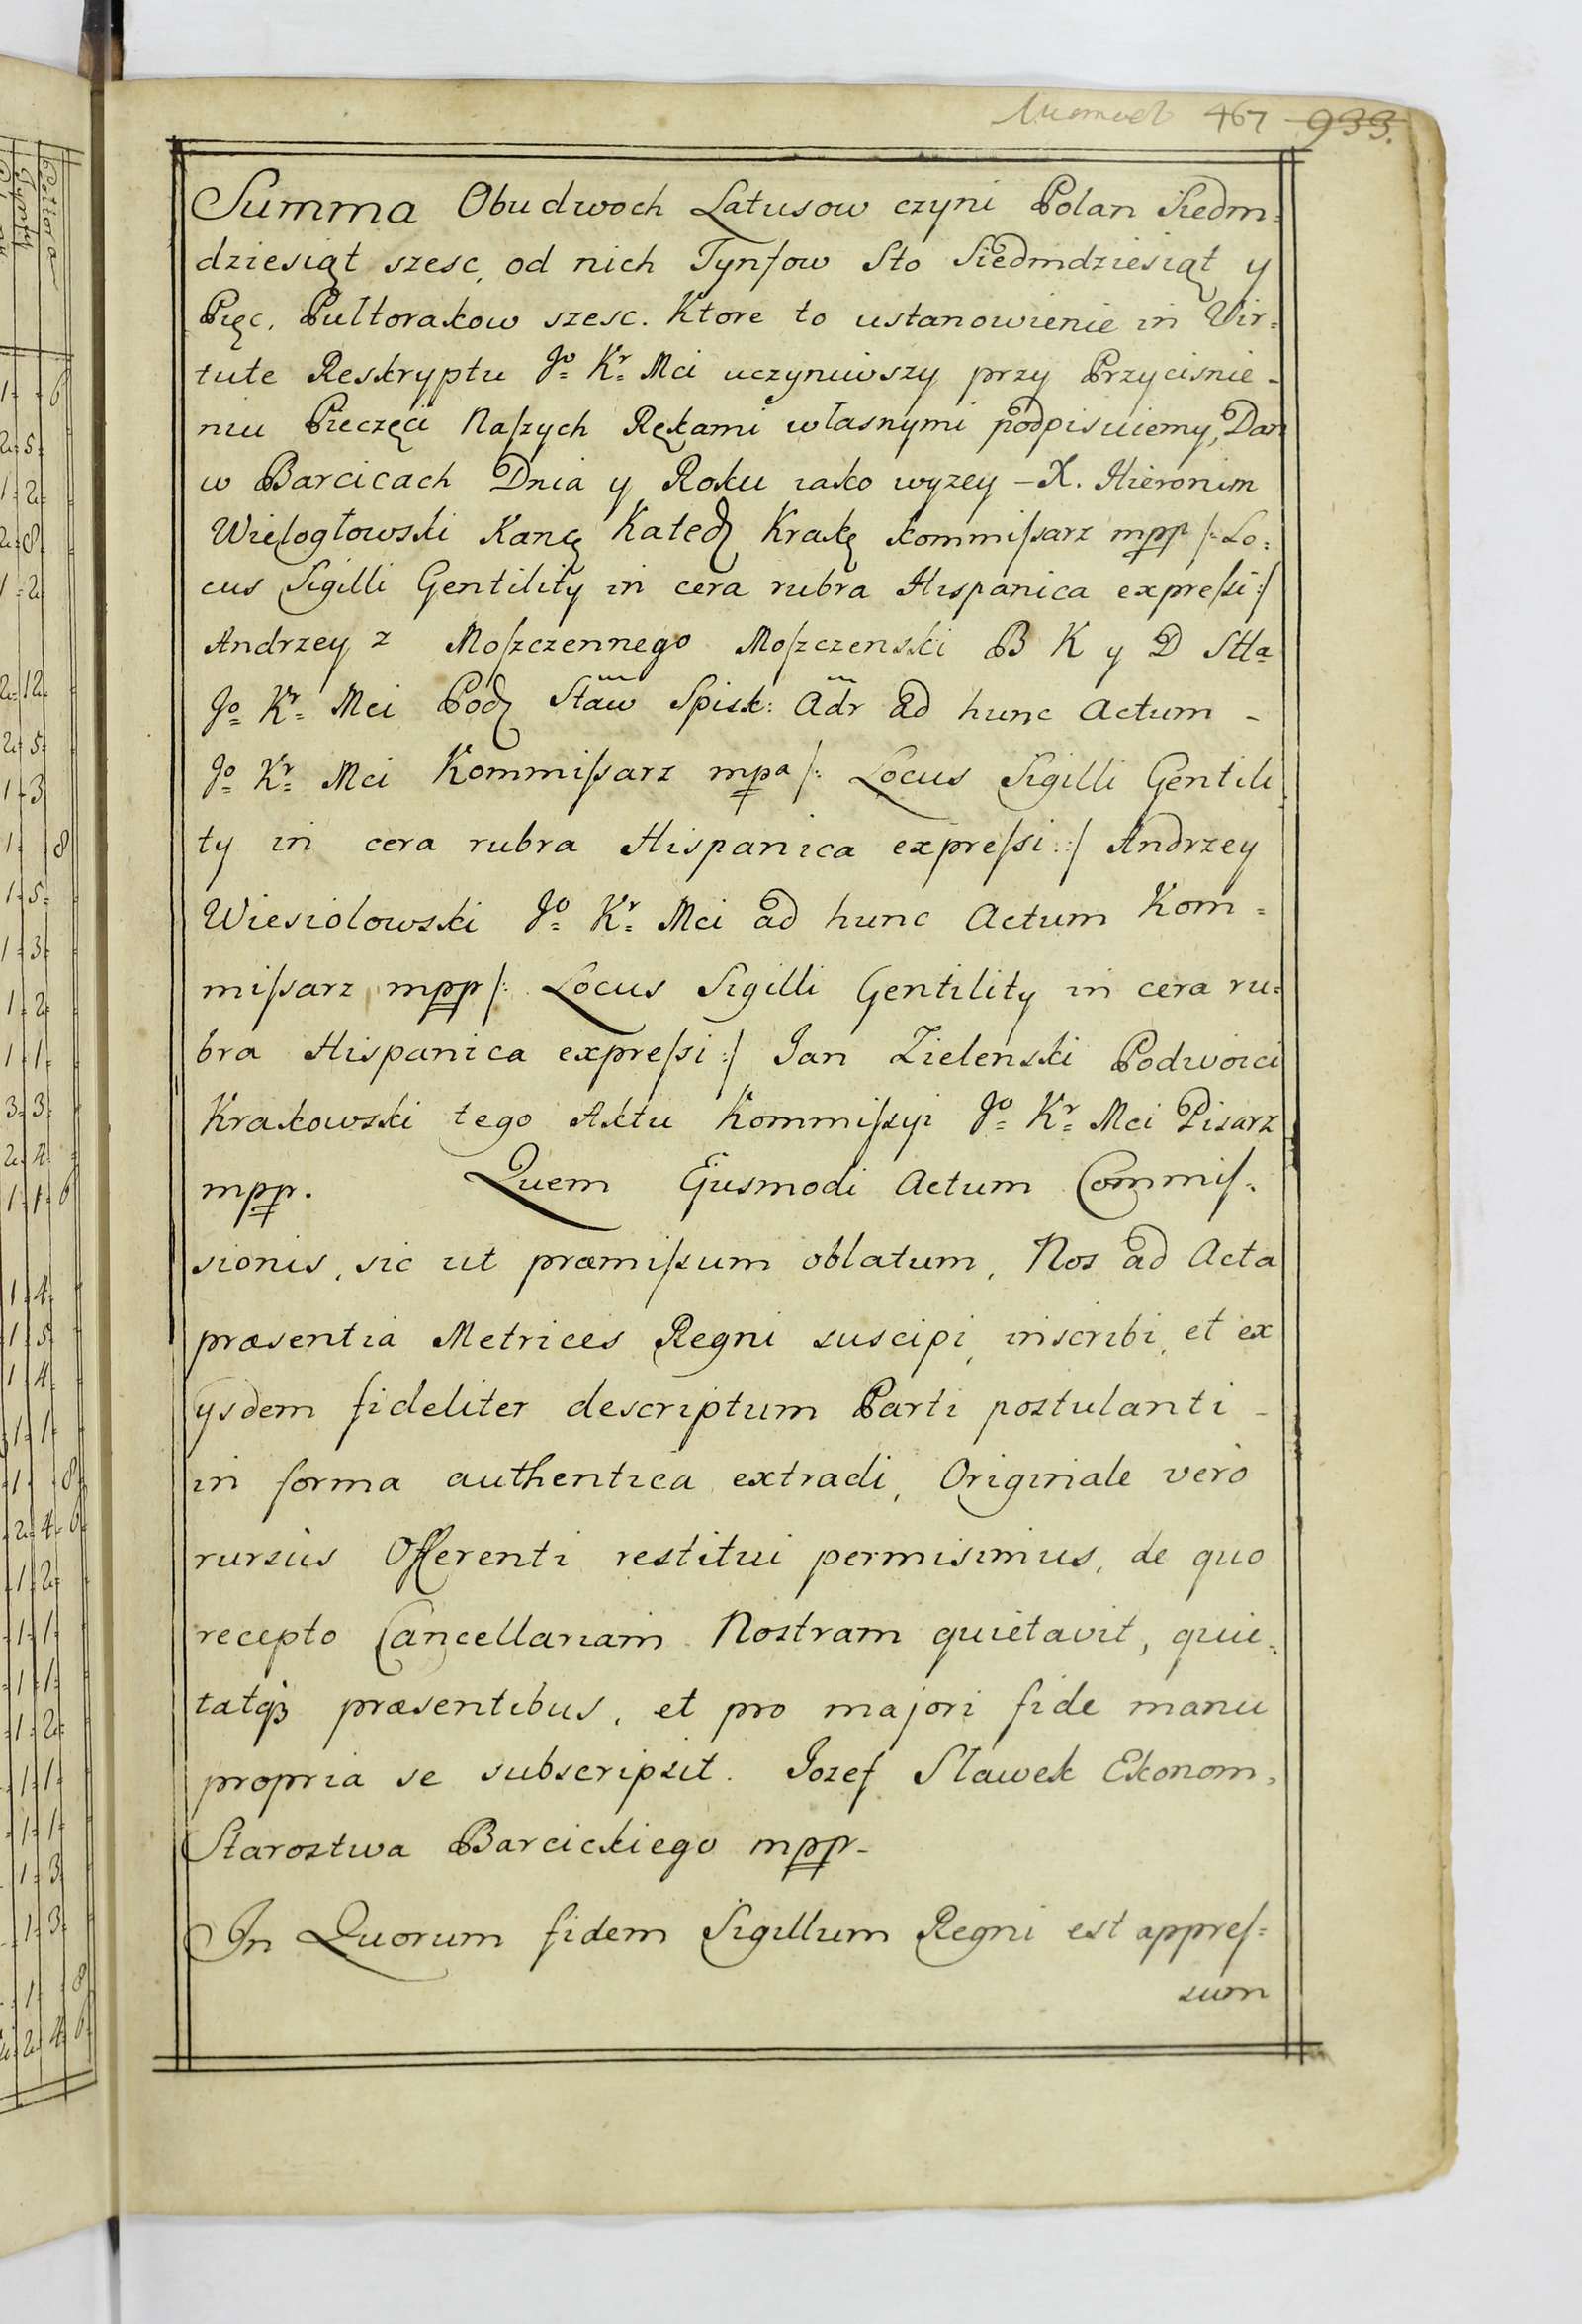 467 933.
Summa Obudwoch Latusow czyni Polan Siedm=
dziesiąt szesc, od nich Tynfow Sto Siedmdziesiąt y
Pięc, Pułtorakow szesc. Ktore to ustanowienie in Vir=
tute Reskryptu Jº= Kr= Mci uczyniwszy przy Przycisnie-
niu Pieczęci Naszych Rękami własnymi podpisuiemy, Dan
w Barcicach Dnia y Roku iako wyzey - X. Hieronim
Wielogłowski Kanę Kated Krakę kommissarz mpp /: Lo=
cus Sigilli Gentility in cera rubra Hispanica expressi :/
Andrzey z Moszczennego Moszczenski B K y D Stta
Jº= Kr= Mci Pod Staw Spisk: Adr ad hunc Actum -
Jº= Kr= Mci Kommissarz mpa /: Locus Sigilli Gentili
ty in cera rubra Hispanica expressi :/ Andrzey
Wiesiolowski Jº= Kr= Mci ad hunc Actum Kom=
missarz mpp /: Locus Sigilli Gentility in cera ru=
bra Hispanica expressi :/ Jan Zielenski Podwoici
Krakowski tego Aktu Kommissyi Jº= Kr= Mci Pisarz
mpp. Quem Ejusmodi Actum Commis=
sionis, sic ut præmissum oblatum, Nos ad Acta
præsentia Metrices Regni suscipi, inscribi, et ex
ysdem fideliter descriptum Parti postulanti -
in forma authentica extradi, Originale vero
rursus Offerenti restitui permisimus, de quo
recepto Cancellariam Nostram quietavit, quie=
tatqꝫ præsentibus, et pro majori fide manu
propria se subscripsit. Jozef Sławek Ekonom,
Starostwa Barcickiego mpp-
In Quorum fidem Sigillum Regni est appres=
sum